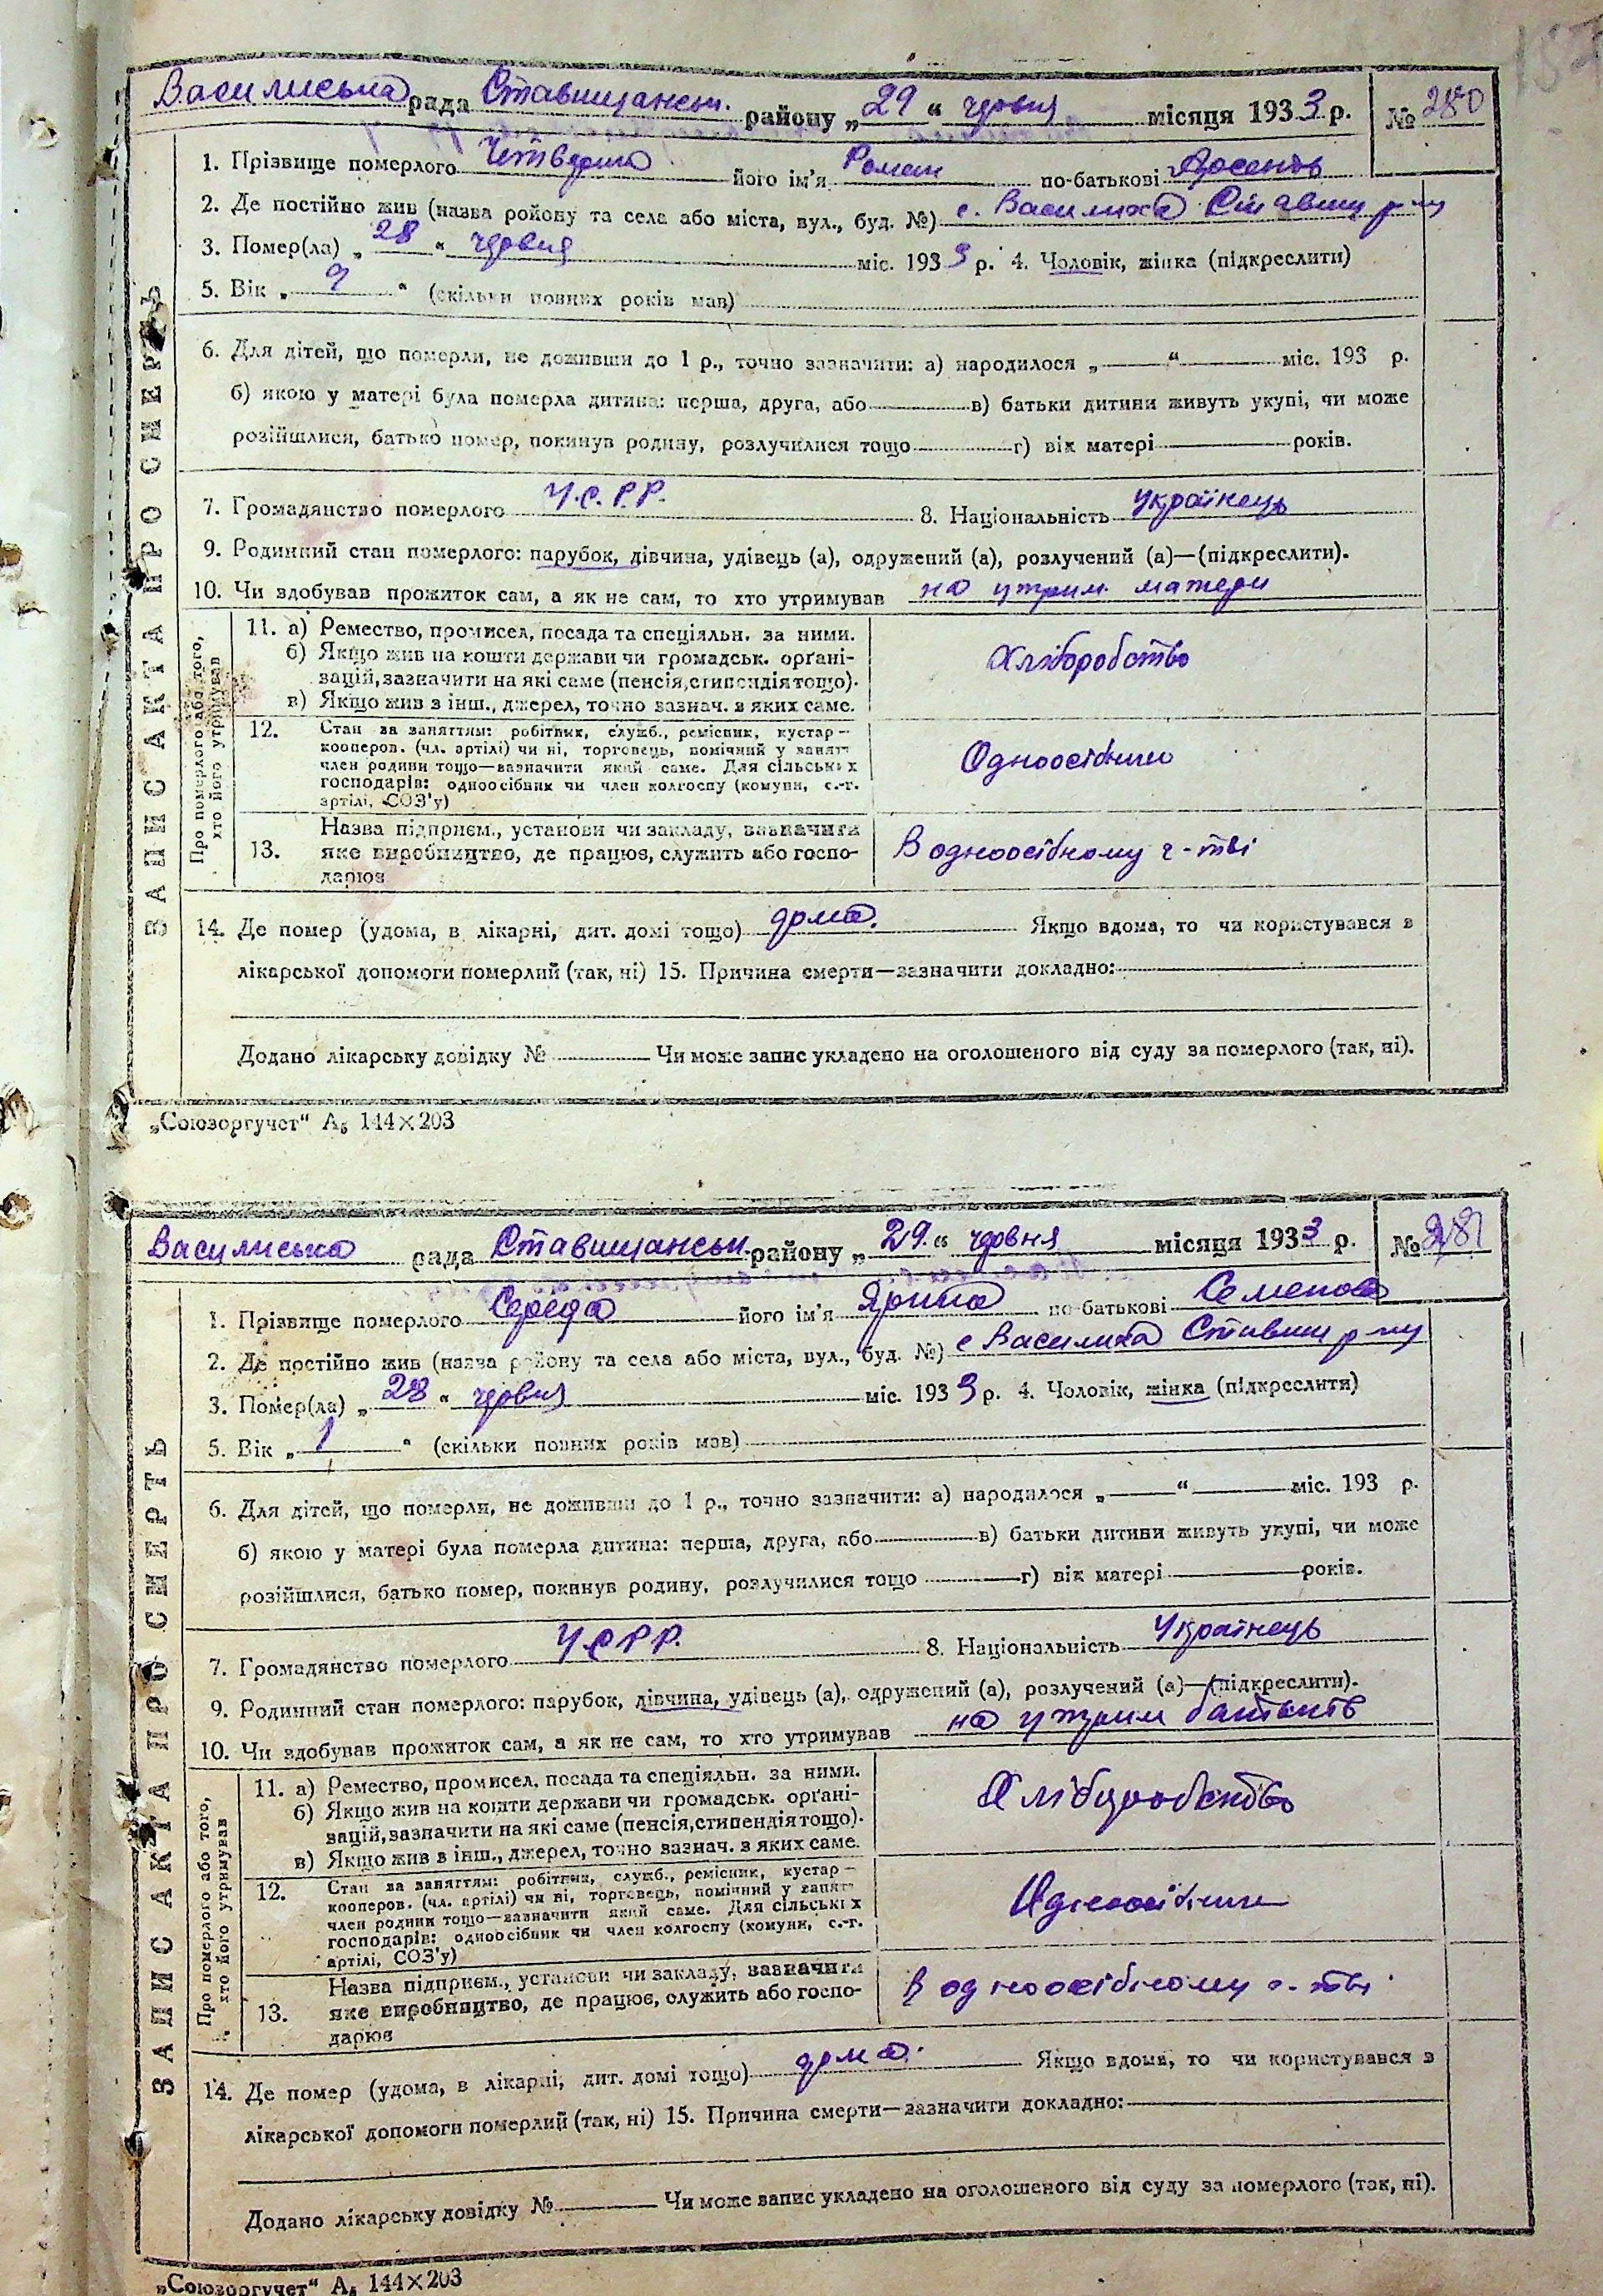 Василиська рада Ставищанськ. району „29“ червня місяця 1933 р. № 280
1. Прізвище померлого його ім'я Роман по-батькові
2. Де постійно жив (назва ройону та села або міста, вул., буд. №) с. Василиха Ставищ р-ну
3. Помер(ла) „28“ червня міс. 1933 р. 4. Чоловік, жінка (підкреслити)
5. Вік „9“ (скільки повних років мав)
6. Для дітей, що померли, не доживши до 1 р., точно зазначити: а) народилося „—“ — міс. 193 р.
б) якою у матері була померла дитина: перша, друга, або — в) батьки дитини живуть укупі, чи може
розійшлися, батько помер, покинув родину, розлучилися тощо — г) вік матері — років.
7. Громадянство померлого У.С.Р.Р. 8. Національність Українець
9. Родинний стан померлого: парубок, дівчина, удівець (а), одружений (а), розлучений (а)—(підкреслити).
10. Чи здобував прожиток сам, а як не сам, то хто утримував на утрим. матери
ЗАПИС АКТА ПРО СМЕРТЬ
Про померлого або того, хто його утримував
11. а) Ремество, промисел, посада та спеціяльн. за ними.
б) Якщо жив на кошти держави чи громадськ. орґані-
зацій, зазначити на які саме (пенсія, стипендія тощо).
в) Якщо жив з інш., джерел, точно зазнач. з яких саме.
Хліборобство
12. Стан за заняттям: робітник, служб., ремісник, кустар—
кооперов. (чл. артілі) чи ні, торговець, помічний у занятт
член родини тощо—зазначити який саме. Для сільських
господарів: одноосібник чи член колгоспу (комуни, с.-г.
артілі, СОЗ'у)
Одноосібник
13. Назва підприєм., установи чи закладу, зазначити
яке виробництво, де працює, служить або госпо-
дарює
В одноосібному г-тві
14. Де помер (удома, в лікарні, дит. домі тощо) дома. Якщо вдома, то чи користувався з
лікарської допомоги померлий (так, ні) 15. Причина смерти—зазначити докладно:
Додано лікарську довідку № — Чи може запис укладено на оголошеного від суду за померлого (так, ні).
„Союзоргучет“ А₅ 144×203
Василиська рада Ставищанськ. району „29“ червня місяця 1933 р. № 281
1. Прізвище померлого Середа його ім'я Ярина по-батькові Семенова
2. Де постійно жив (назва району та села або міста, вул., буд. №) с Василиха Ставищ р-ну
3. Помер(ла) „28“ червня міс. 1933 р. 4. Чоловік, жінка (підкреслити)
5. Вік „1“ (скільки повних років мав)
6. Для дітей, що померли, не доживши до 1 р., точно зазначити: а) народилося „—“ — міс. 193 р.
б) якою у матері була померла дитина: перша, друга, або — в) батьки дитини живуть укупі, чи може
розійшлися, батько помер, покинув родину, розлучилися тощо — г) вік матері — років.
7. Громадянство померлого УСРР. 8. Національність Українець
9. Родинний стан померлого: парубок, дівчина, удівець (а), одружений (а), розлучений (а)—(підкреслити).
10. Чи здобував прожиток сам, а як не сам, то хто утримував на утрим батьків
ЗАПИС АКТА ПРО СМЕРТЬ
Про померлого або того, хто його утримував
11. а) Ремество, промисел, посада та спеціяльн. за ними.
б) Якщо жив на кошти держави чи громадськ. орґані-
зацій, зазначити на які саме (пенсія, стипендія тощо).
в) Якщо жив з інш., джерел, точно зазнач. з яких саме.
12. Стан за заняттям: робітник, служб., ремісник, кустар—
кооперов. (чл. артілі) чи ні, торговець, помічний у занятт
член родини тощо—зазначити який саме. Для сільських
господарів: одноосібник чи член колгоспу (комуни, с.-г.
артілі, СОЗ'у)
Одноосібник
13. Назва підприєм., установи чи закладу, зазначити
яке виробництво, де працює, служить або госпо-
дарює
В одноосібному г-тві
14. Де помер (удома, в лікарні, дит. домі тощо) дома. Якщо вдома, то чи користувався з
лікарської допомоги померлий (так, ні) 15. Причина смерти—зазначити докладно:
Додано лікарську довідку № — Чи може запис укладено на оголошеного від суду за померлого (так, ні).
„Союзоргучет“ А₅ 144×203